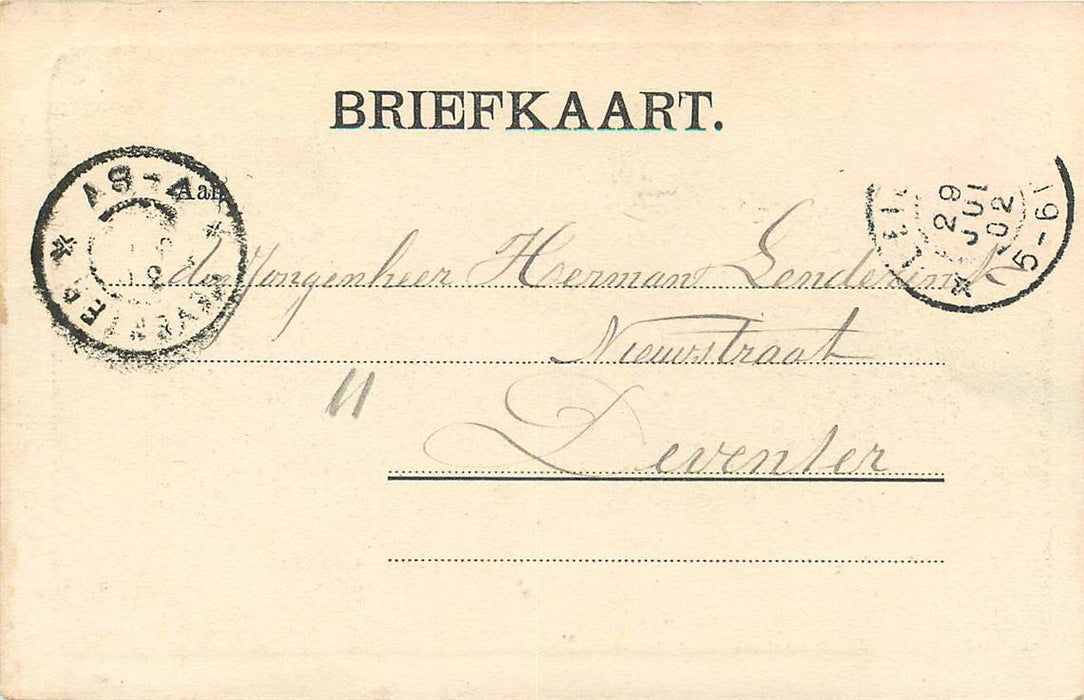 BRIEFKAART.
Aan
den Jongenheer Herman Lenderink
Nieuwstraat
11
Deventer
DEVENTER
7-8V
29
JUL
02
5-6N